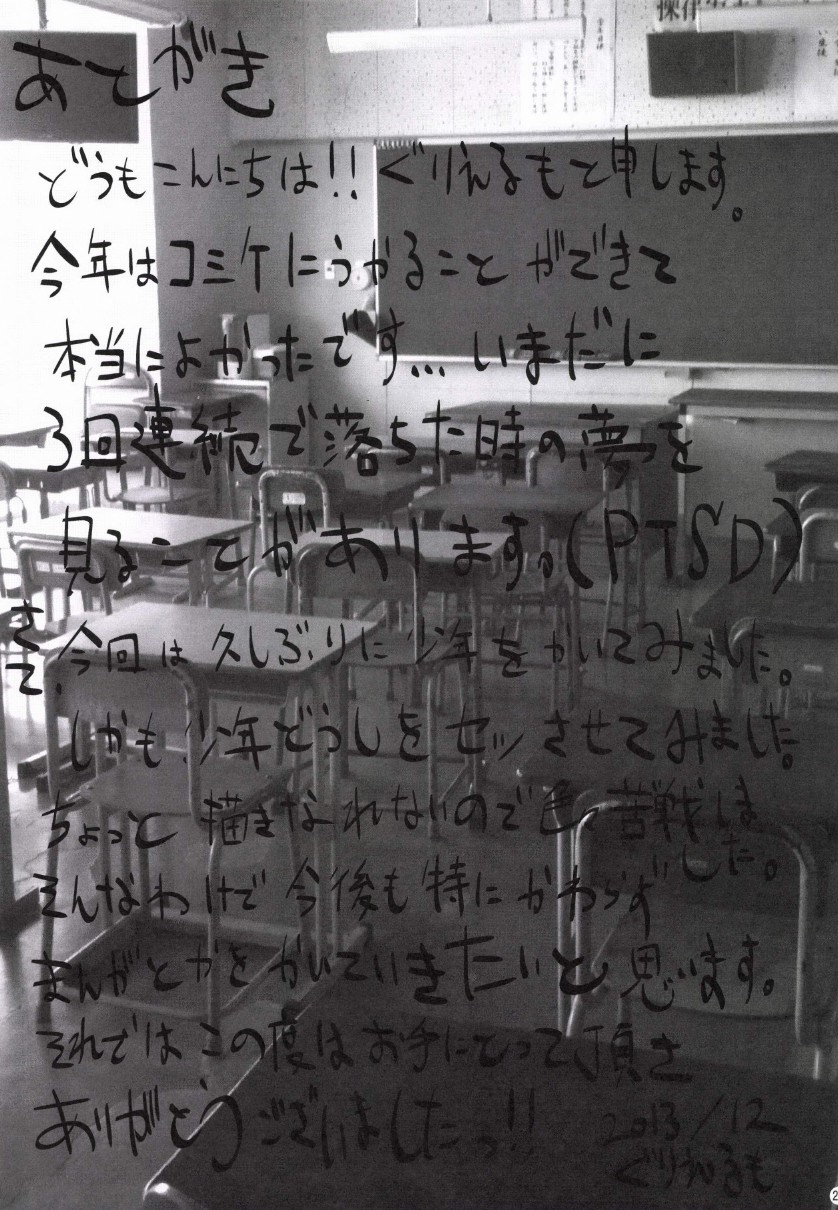 あとがき
どうもこんにちは!! ぐりえるもと申します。
今年はコミケにうかることができて
本当によかったです… いまだに
3回連続で落ちた時の夢を
見ることがあります。(PTSD)
さて、今回は久しぶりに少年をかいてみました。
しかも少年どうしをセッ させてみました。
ちょっと描きなれないので色々苦戦しました。
そんなわけで今後も特にかわらず
まんがとかをかいていきたいと思います。
それではこの度はお手にとって頂き
ありがとうございましたっ!!
2013/12
ぐりえるも
2